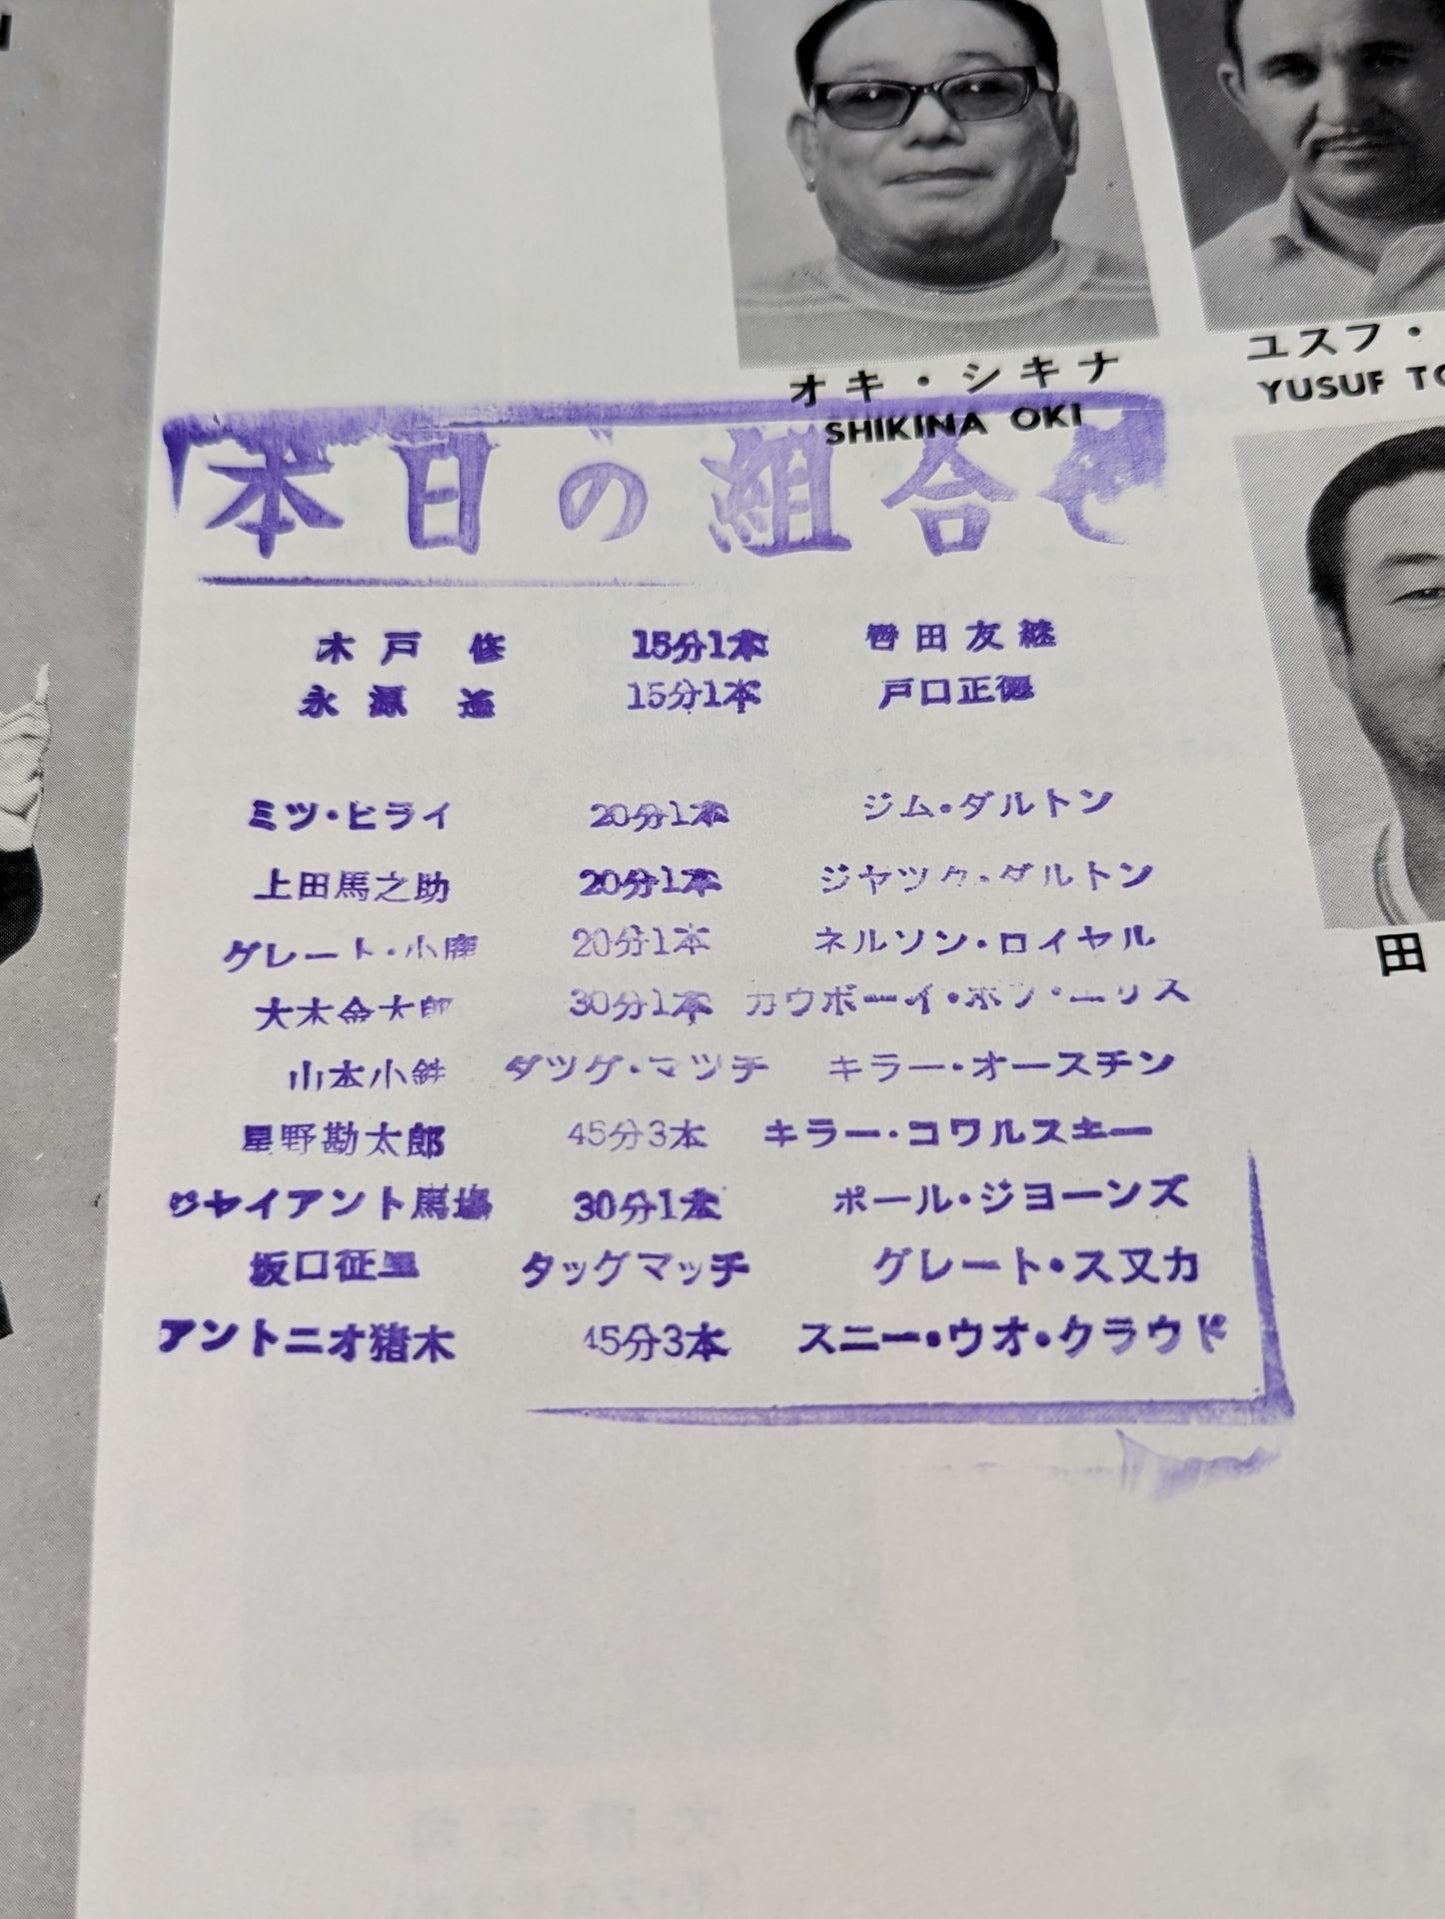 オキ・シキナ
SHIKINA OKI
ユスフ・
YUSUF
田
本日の組合せ
木戸 修 15分1本 轡田友継
永源 遙 15分1本 戸口正徳
ミツ・ヒライ 20分1本 ジム・ダルトン
上田馬之助 20分1本 ジヤツク・ダルトン
グレート・小鹿 20分1本 ネルソン・ロイヤル
大木金太郎 30分1本 カウボーイ・ボブ・エリス
山本小鉄 タツグ・マツチ キラー・オースチン
星野勘太郎 45分3本 キラー・コワルスキー
ジヤイアント馬場 30分1本 ポール・ジヨーンズ
坂口征二 タッグマッチ グレート・スヌカ
アントニオ猪木 45分3本 スニー・ウオ・クラウド